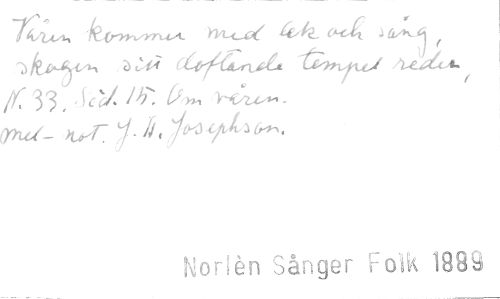 Våren kommer med lek och sång,
skogen sitt doftande tempel reder,
N. 33. Sid. 15. Om våren.
med not. J. A. Josephson.
Norlèn Sånger Folk 1889